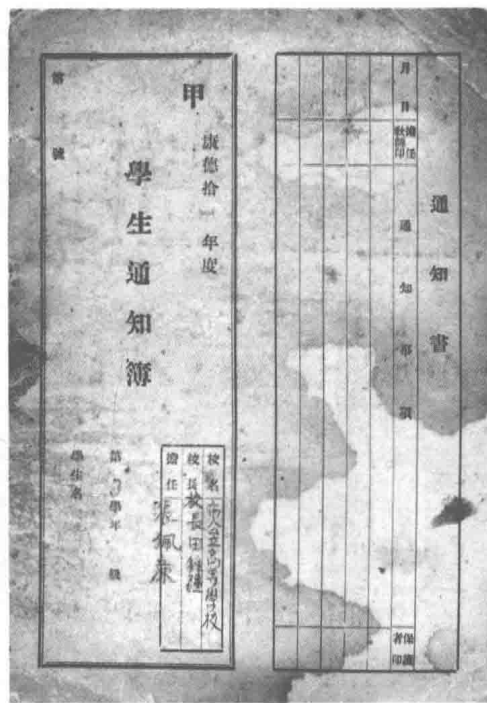 通知書
月日
擔任
教師印
通知事項
保護
者印
甲
康德拾一年度
學生通知簿
第 號
校名 學校
校長 校長田
擔任
第3學年 級
學生名